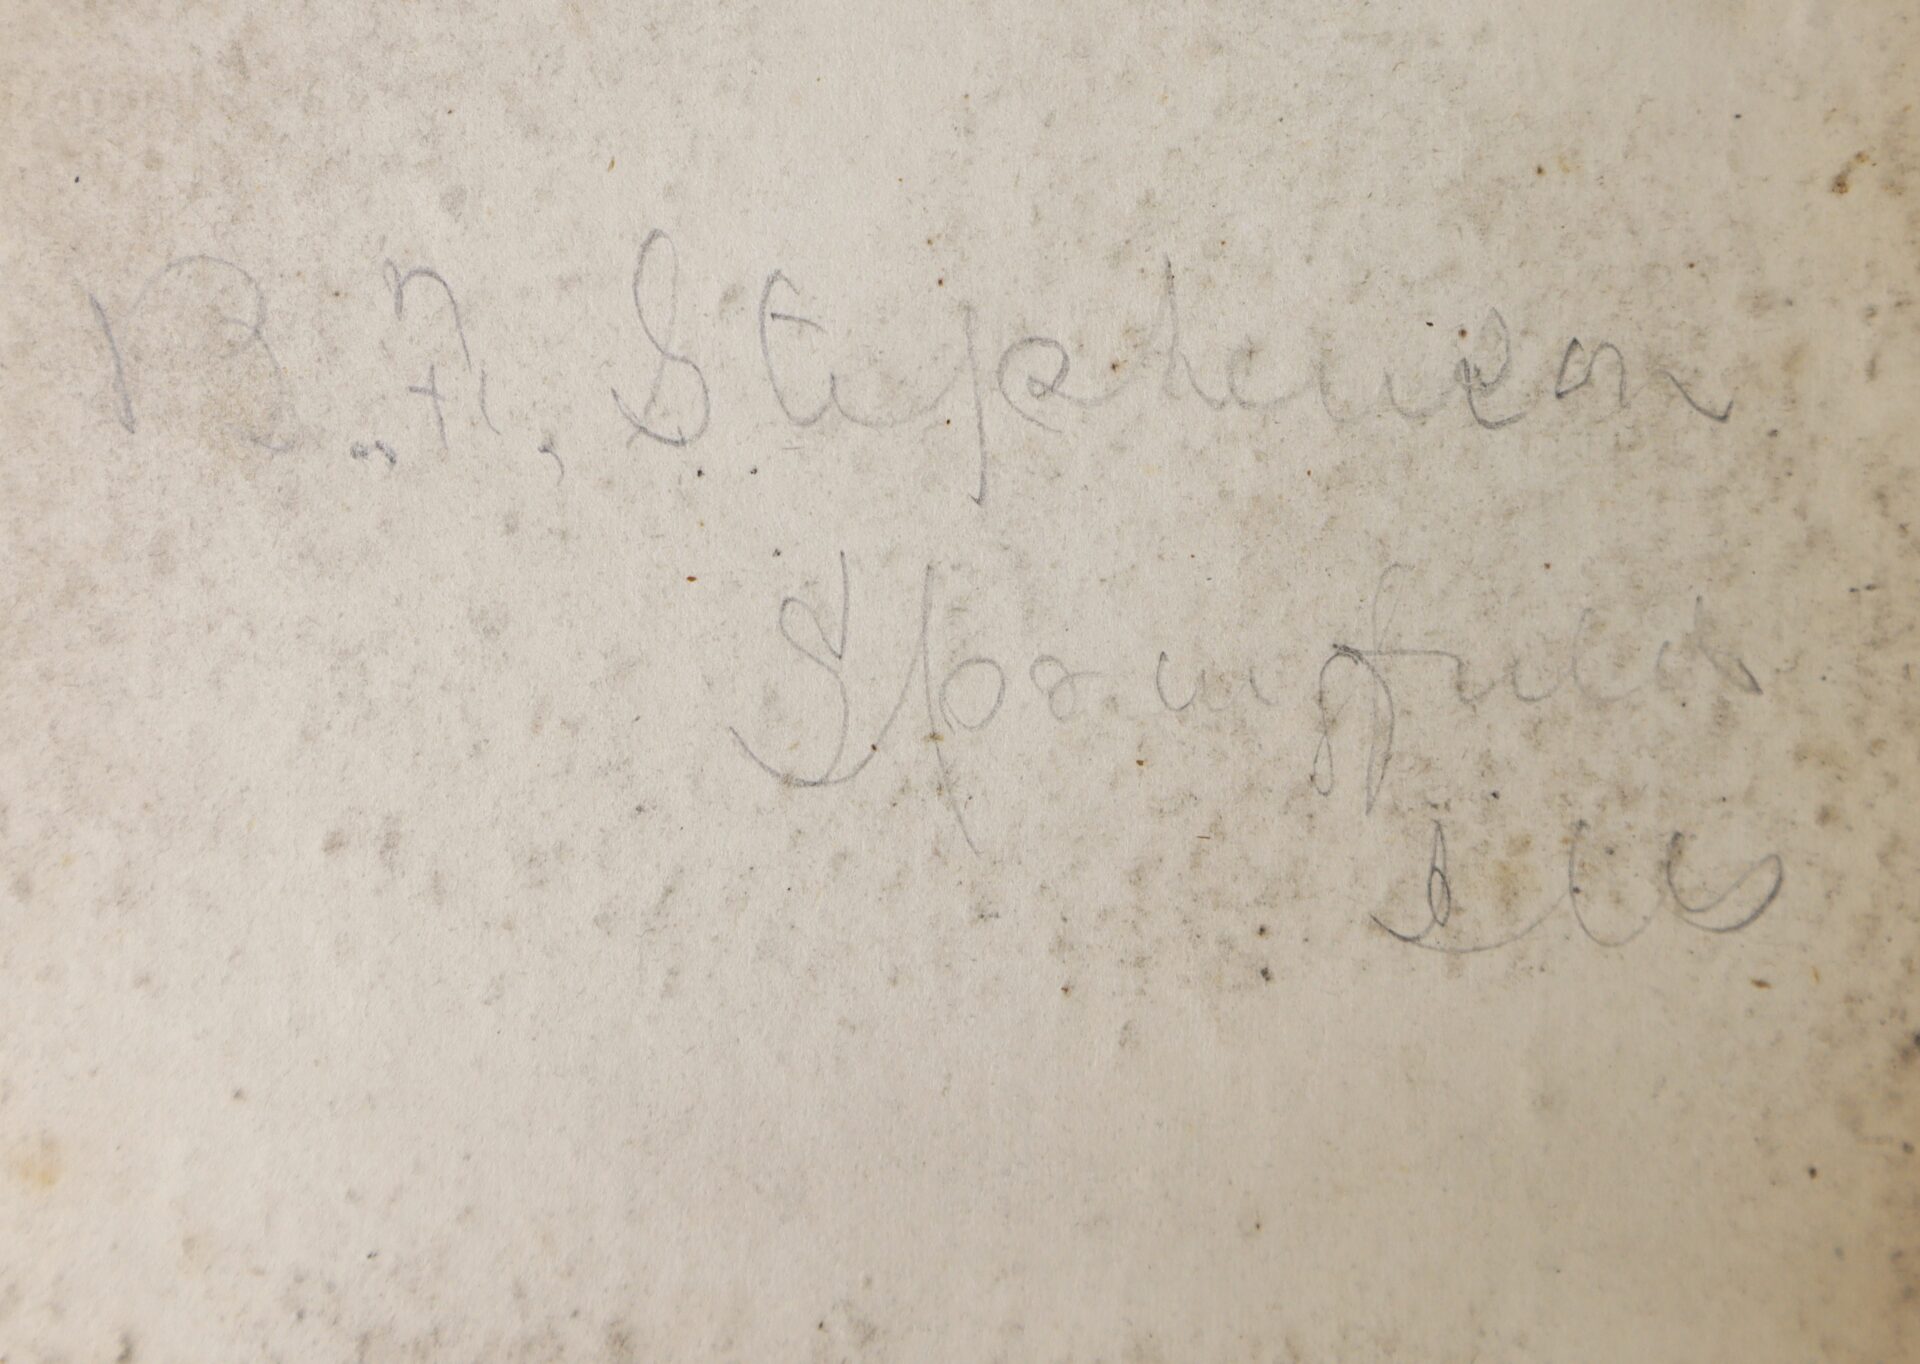 B. A. Stephenson
Springfield
Ills